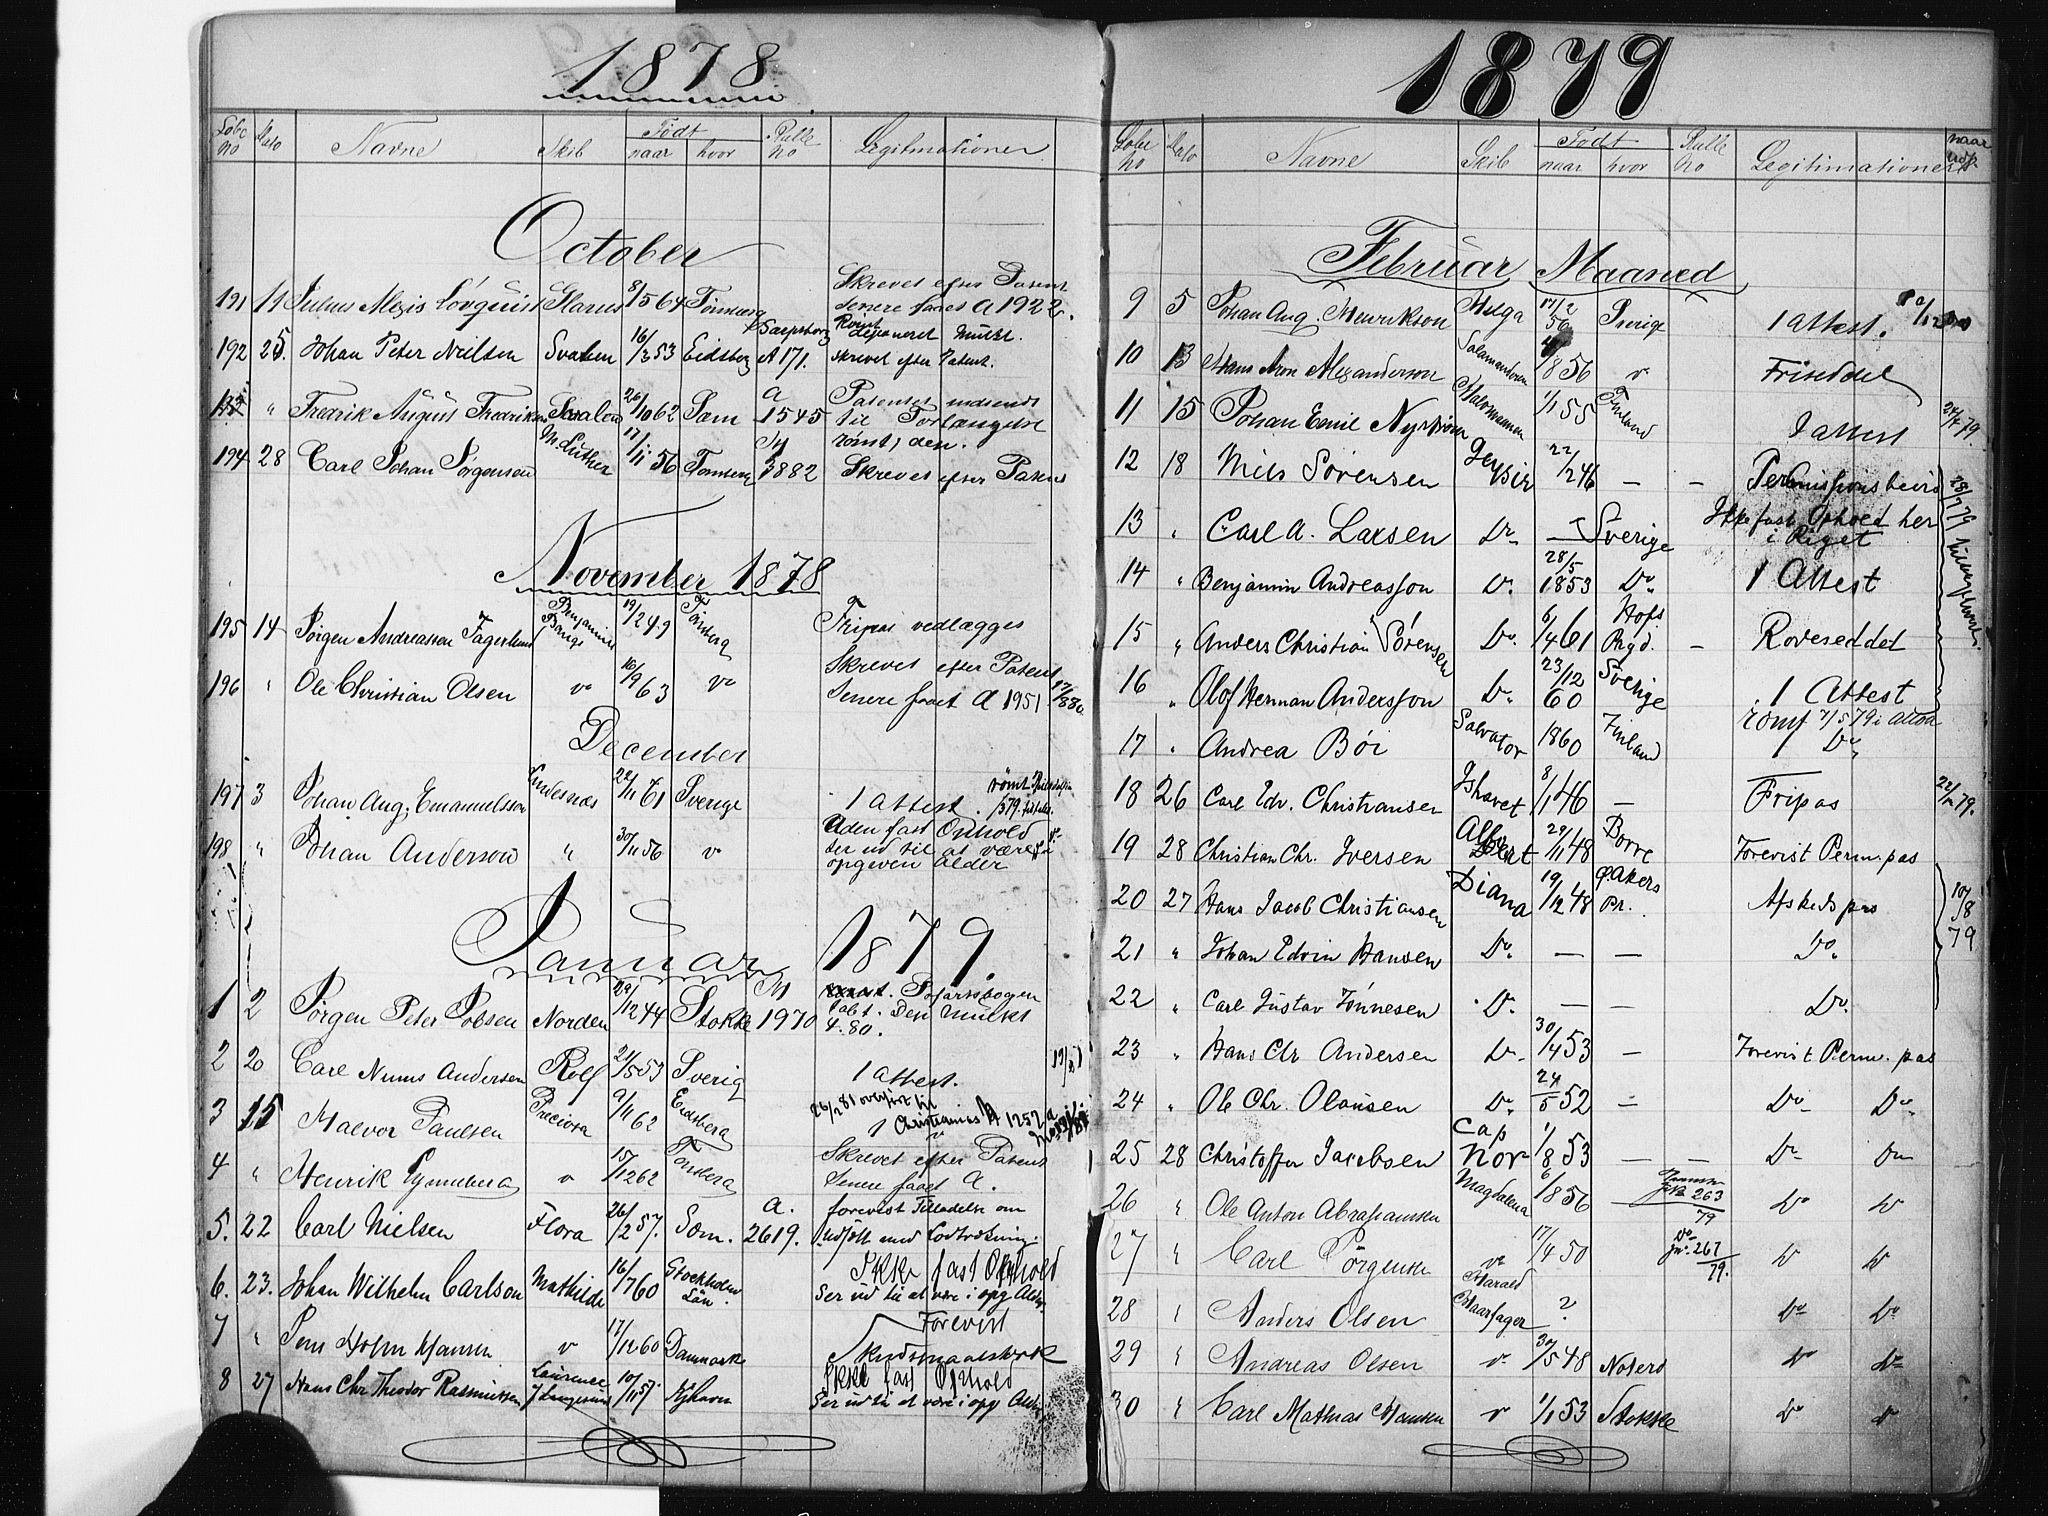 1878
Løbe No Dato Navne Skib Født naar hvor Rulle No Legitimationer
October
191 19 Julius Alexis Lövquist Glarus 8/1 564 Tönsberg Skrevet efter Patent
senere faaet A 1922.
192 25. Johan Peter Neilsen Svalen 16/2 53 Eidsberg Sarpsborg A 171. Römt deponeret Mulkt.
skrevet efter Patent.
193 " Fredrik August Fredriksen Svalen 26/10 62 Sem A 1545 Patentet indsendt
til Forlængelse
römt, den.
194 28 Carl Johan Jörgensen M. Luther 17/11 56 Tönsberg 3882 Skrevet efter Patent
November 1878
195 14 Jörgen Andreassen Fagerlund Benjamin Bangs 19/2 49 Tönsberg Fripas vedlægges
196 " Ole Christian Olsen vo 16/9 63 vo Skrevet efter Patent
senere faaet A 1951 17/8 80
December
197 3 Johan Aug. Emanuelsson Lindesnæs 22/11 61 Sverige 1 Attest. römt
198 " Johan Anderson " 30/11 56 v Uden fast Ophold
ser ud til at være i
opgiven alder
Januar 1879.
1 2 Jörgen Peter Jobsen Norden 29/12 44 Stokke 1970 Söfartsbogen
tabt. Den Mulkt
4.80.
2 20 Carl Nums Andersen Rolf 21/5 53 Sverig 1 Attest.
3 15 Halvor Paulsen Preciosa 9/11 62 Eidsberg 26/2 81 overfört til
1 Christiania A 1252
4 " Henrik Lynneberg v 15/12 62 Tönsberg Skrevet efter Patent
Senere faaet A.
5. 22 Carl Nielsen Flora 26/2 57. Sem. A. 2619. forevist Tilladelse om
Udsjött med Lodtrækning.
6. 23. Johan Wilhelm Carlson Mathilde 16/7 60 Stockholm Län. Ikke fast Ophold
Ser ud til at være i opg Alder.
7 " Jens Holm Hansen v 17/12 60 Danmark Forevist
Skudsmaalsbok
8 27 Hans Chr. Theodor Rasmussen Laurence Langesund 10/11 57. Kjhavn Ikke fast Ophold
Ser ud til at være i opg Alder
1879
Löbe No Dato Navne Skib Födt naar hvor Rulle No Legitimationer naar udg.
Februar Maaned
9 5 Johan Aug. Henrikson Helga 17/2 56 Sverige 1 Attest.
10 13 Hans Aron Alexanderson Salamanderen /8 56 v Friseddel
11 15 Johan Emil Nyström 1/1 55 Finland 1 attest 24/4 79
12 18 Nils Sörensen Geysir 22/2 46 — — Permissionsbevis
13 " Carl A. Larsen Do — Sverige Ikke fast Ophold her
i Riget
14 " Benjamin Andreasson Do 28/5 1853 Do 1 Attest
15 " Anders Christian Sörensen Do. 6/4 61 Hofs Prgd. — Roveseddel
16 " Olof Herman Andersson Do 23/12 60 Sverige 1 Attest
römt 7/5 79 i Altona
17 " Andrea Böi Salvator 1860 Finland Do
18 26 Carl Edv. Christiansen Ishavet 8/1 46 — Fripas 22/ 79.
19 28 Christian Chr. Iversen Albert 29/11 48 Borre Forevist Perm. pas
20 27 Hans Jacob Christiansen Diana 19/12 48 Ø. Akers Pr. Afskedspas 10/8 79
21 " Johan Edvin Hansen Do — — Do
22 " Carl Gustav Tönnesen Do — — Do.
23 " Hans Chr Andersen Do 30/4 53 — Forevist Perm. pas
24 " Ole Chr. Olausen Do 24/5 52 — Do Do
25 28 Christoffer Jacobsen Cap Nor 1/8 53 — — Do Do
26 " Ole Anton Abrahamsen Magdalena 6/8 56 — 263/79 Do Do
27 " Carl Jörgensen vo 17/4 50 Do 267/79. Do Do
28 " Anders Olsen Harald Haarfager ? Do Do
29 " Andreas Olsen v 30/5 48 Noterö Do Do
30 " Carl Mathias Hansen v 1/1 53 Stokke Do Do